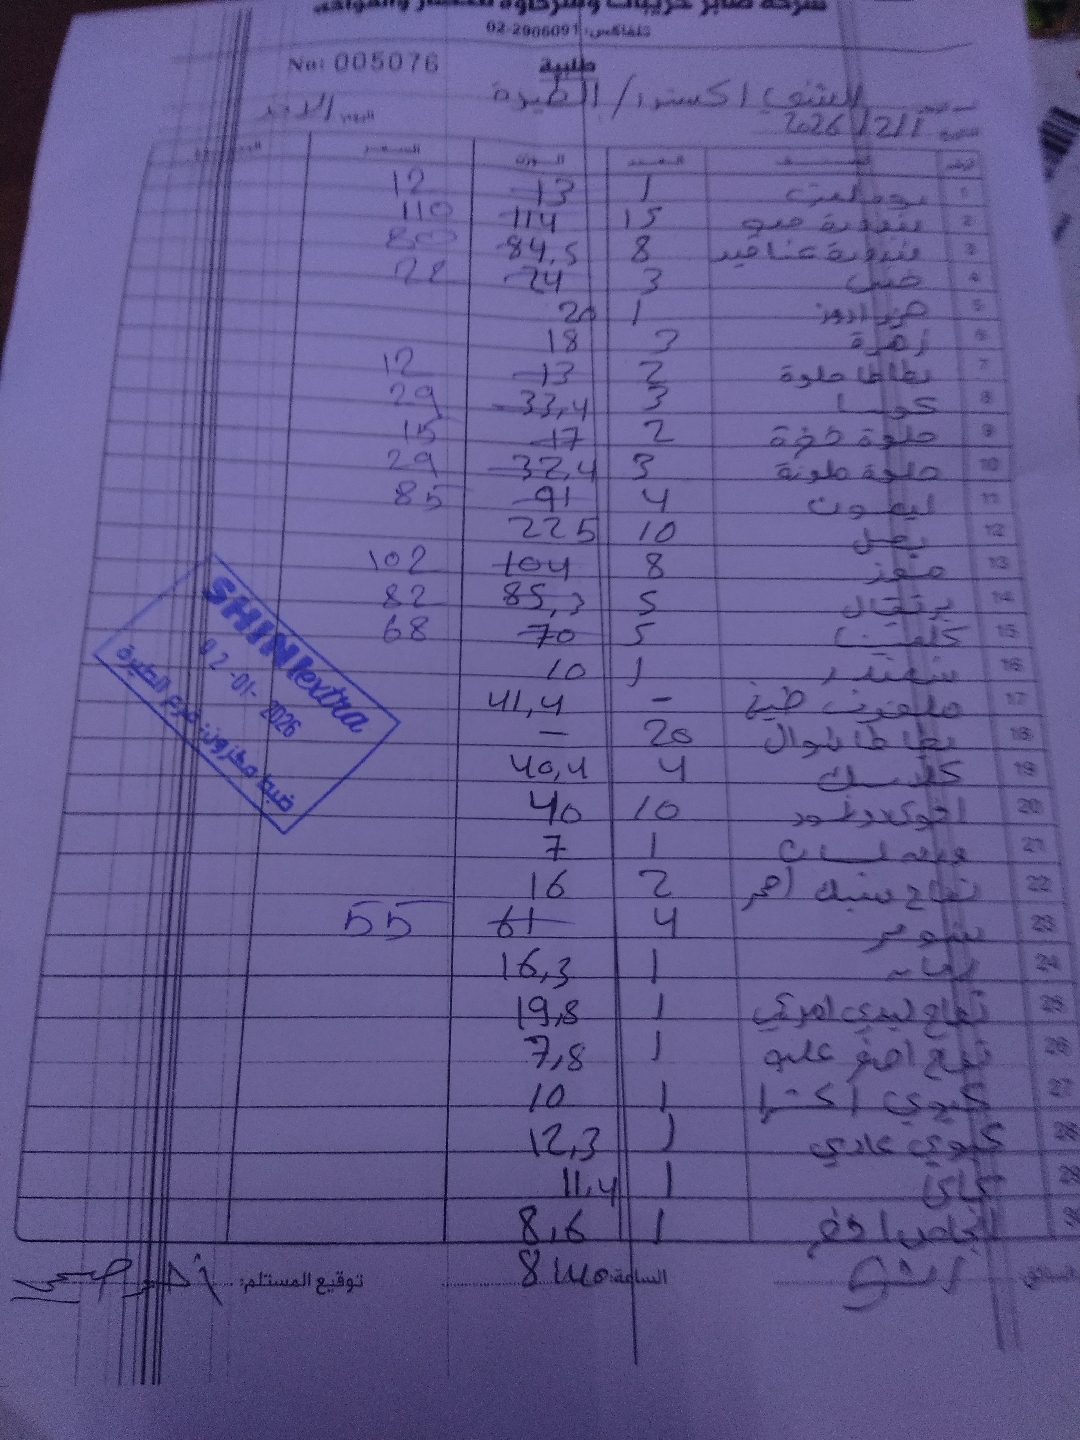 شركة صابر حريبات وشركاؤه للخضار والفواكه
تلفاكس: 02-2906091
No: 005076
طلبية
الشني اكسترا / الطيرة
اليوم الاحد
2026/2/1
الرقم الصنف العدد الوزن السعر
1 1 13 12
2 بندورة 15 114 110
3 بندورة عناقيد 8 84,5 80
4 خس 3 24 22
5 1 20
6 زهرة 3 18
7 بطاطا حلوة 2 13 12
8 كوسا 3 33,4 29
9 حلوة خضرة 2 17 15
10 حلوة ملونة 3 32,4 29
11 ليمون 4 91 85
12 بصل 10 225
13 موز 8 104 102
14 برتقال 5 85,3 82
15 كلمنتينا 5 70 68
16 شمندر 1 10
17 ملفوف - 41,4
18 بطاطا شوال 20 -
19 4 40,4
20 افوكادو 10 40
21 1 7
22 تفاح سنك احمر 2 16
23 شومر 4 61 55
24 1 16,3
25 تفاح ليدي امريكي 1 19,8
26 تفاح اصفر 1 7,8
27 كيوي اكسترا 1 10
28 كيوي عادي 1 12,3
29 1 11,4
30 انجاص اخضر 1 8,6
السائق
الساعة: 8:40
توقيع المستلم:
SHINI extra
02-01-2026
ضبط مخزون- فرع الطيرة